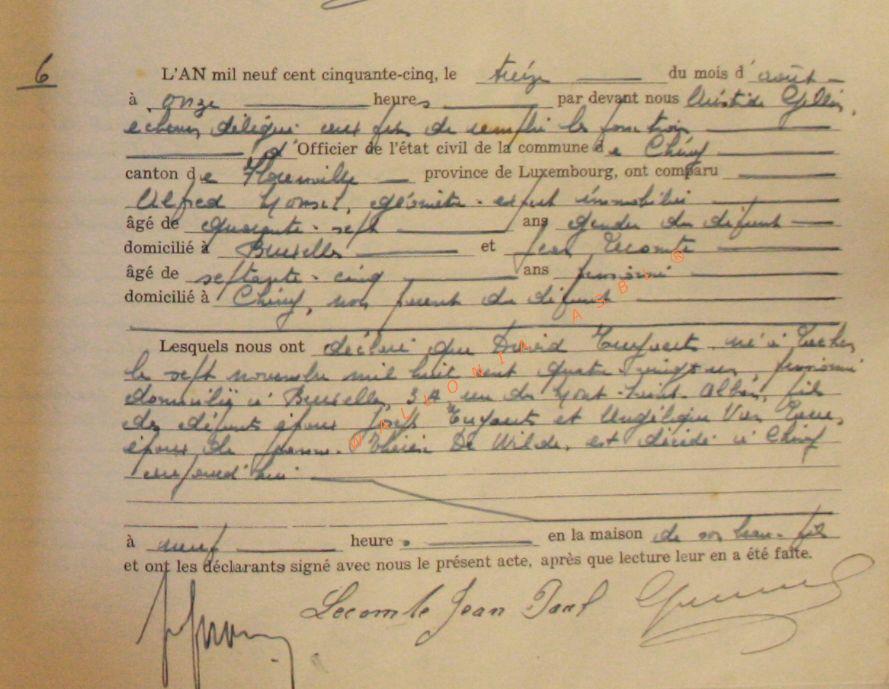 6
L'AN mil neuf cent cinquante-cinq, le treize du mois d'août
à onze heures par devant nous Aristide Gillin,
échevin délégué aux fins de remplir les fonctions
d'Officier de l'état civil de la commune de Chiny
canton de Florenville province de Luxembourg, ont comparu
Alfred géomètre-expert immobilier
âgé de quarante-sept ans gendre du défunt
domicilié à Bruxelles et Jean Lecomte
âgé de septante-cinq ans pensionné
domicilié à Chiny, non parent du défunt
Lesquels nous ont déclaré que David né à
le sept novembre mil huit cent quatre vingt un, pensionné
domicilié à Bruxelles, rue du Mont-Saint-Alban, fils
des défunts époux Joseph et Angélique Van
époux de De Wilde, est décédé à Chiny
aujourd'hui
à neuf heures en la maison de son beau-fils
et ont les déclarants signé avec nous le présent acte, après que lecture leur en a été faite.
Lecomte Jean
© WALLONIA ASBL ®